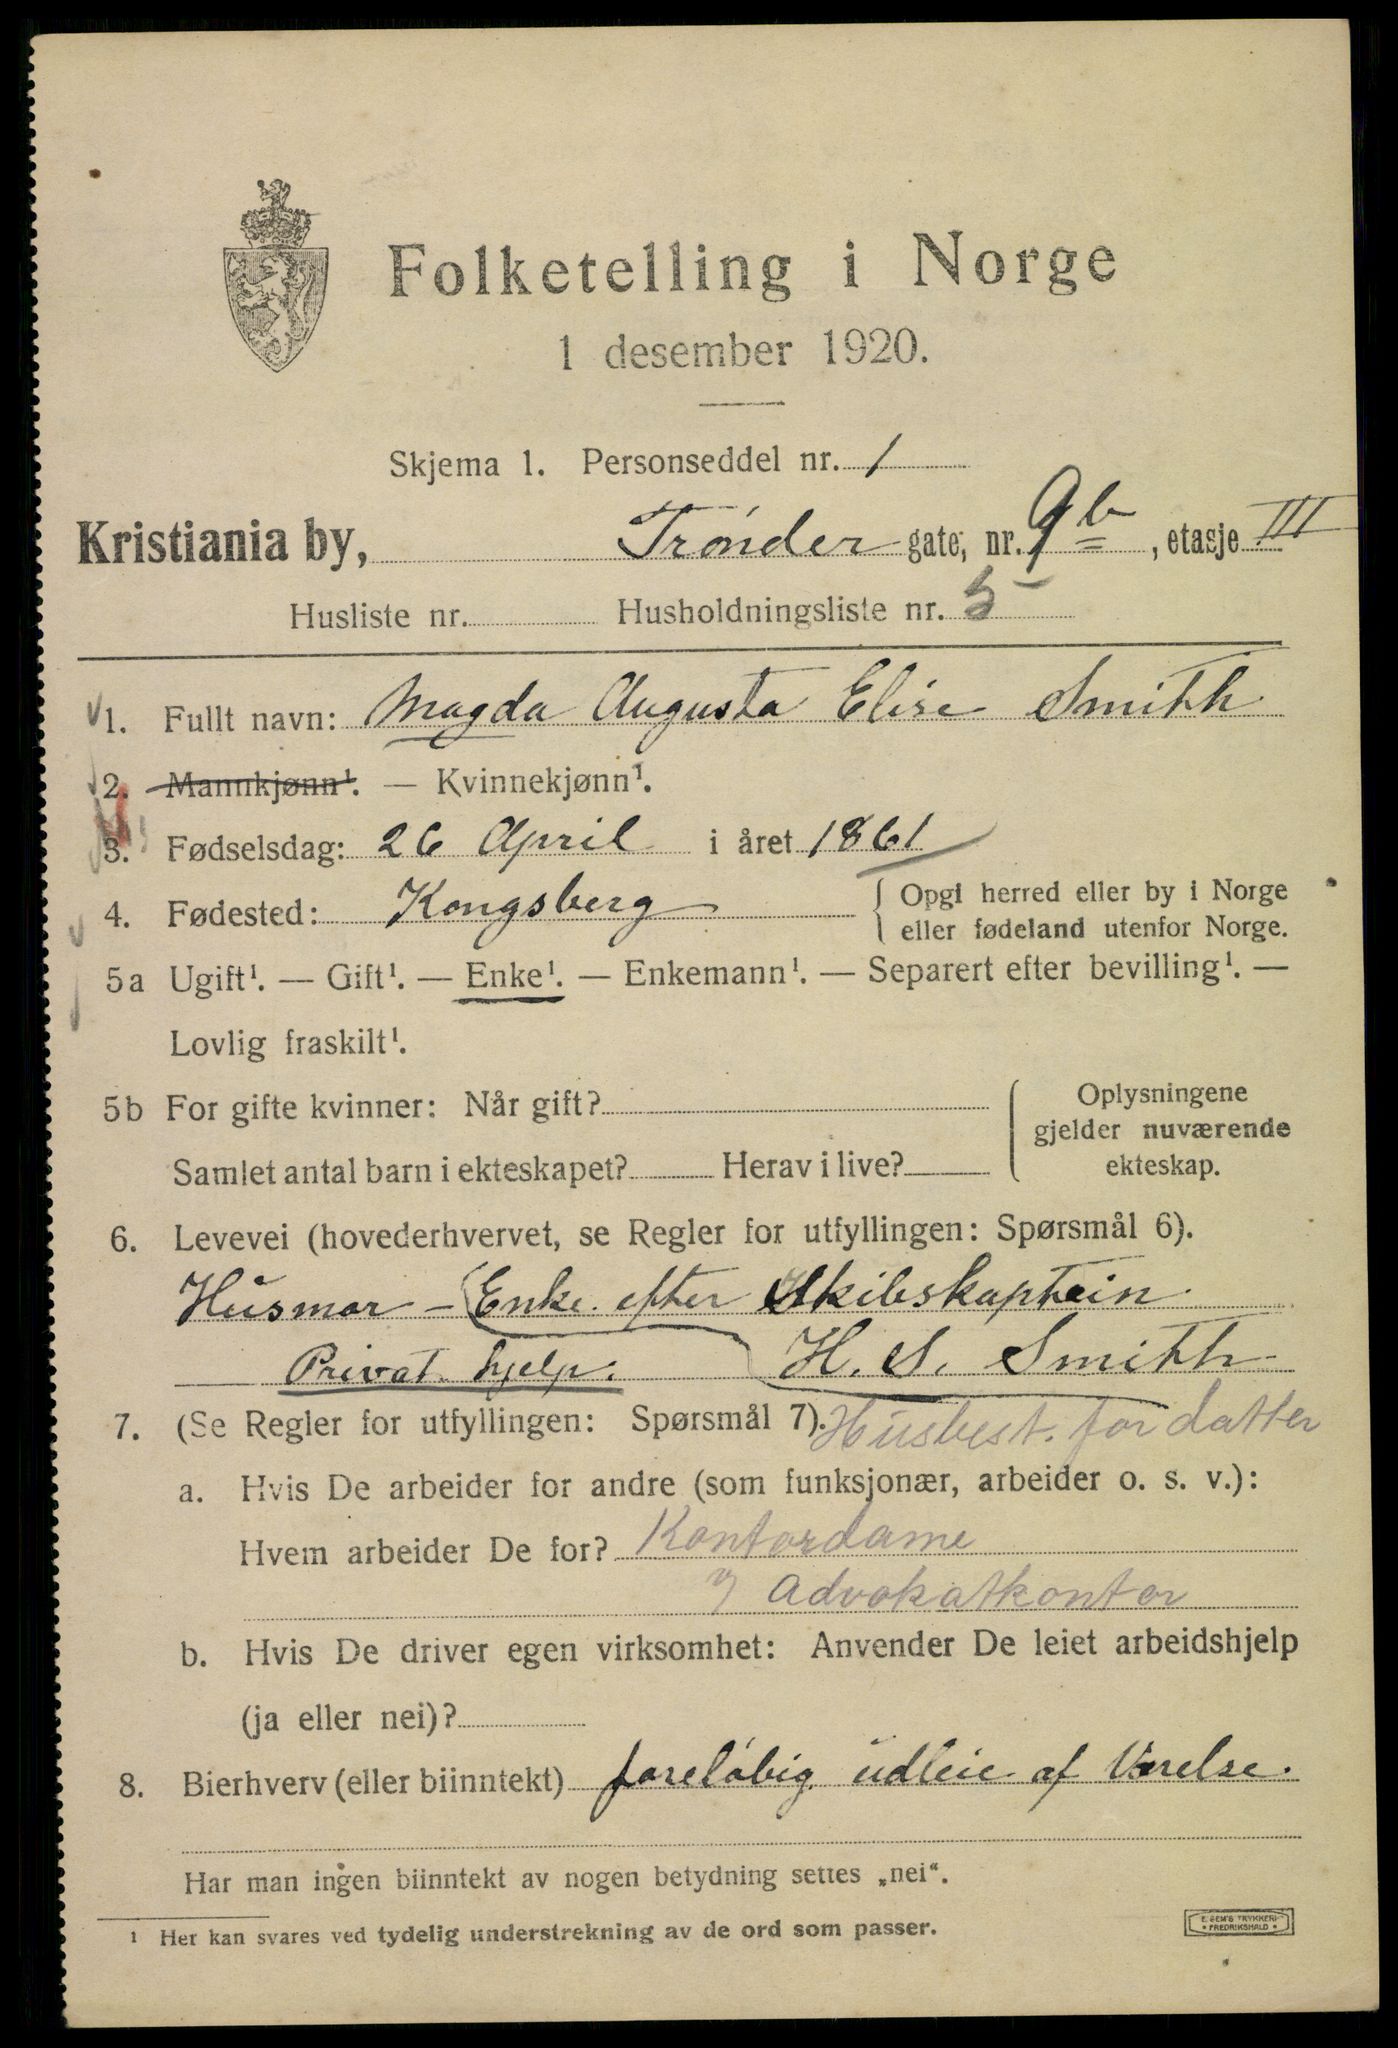 Folketelling i Norge
1 desember 1920.
Skjema 1. Personseddel nr. 1
Kristiania by, Trønder gate, nr. 9b, etasje III
Husliste nr. Husholdningsliste nr. 5
1. Fullt navn: Magda Augusta Elise Smith
2. Mannkjønn¹. — Kvinnekjønn¹.
3. Fødselsdag: 26 April i året 1861
4. Fødested: Kongsberg
Opgi herred eller by i Norge
eller fødeland utenfor Norge.
5a Ugift¹. — Gift¹. — Enke¹. — Enkemann¹. — Separert efter bevilling¹. —
Lovlig fraskilt¹.
5b For gifte kvinner: Når gift?
Samlet antal barn i ekteskapet? Herav i live?
Oplysningene
gjelder nuværende
ekteskap.
6. Levevei (hovederhvervet, se Regler for utfyllingen: Spørsmål 6).
Husmor – Enke efter Skibskaptein
Privat hjelp. H. S. Smith
7. (Se Regler for utfyllingen: Spørsmål 7). Husbest. for datter
a. Hvis De arbeider for andre (som funksjonær, arbeider o. s. v.):
Hvem arbeider De for? Kontordame
Advokatkontor
b. Hvis De driver egen virksomhet: Anvender De leiet arbeidshjelp
(ja eller nei)?
8. Bierhverv (eller biinntekt) foreløbig udleie af Værelse.
Har man ingen biinntekt av nogen betydning settes „nei“.
¹ Her kan svares ved tydelig understrekning av de ord som passer.
E. SEM'S TRYKKERI
• FREDRIKSHALD •